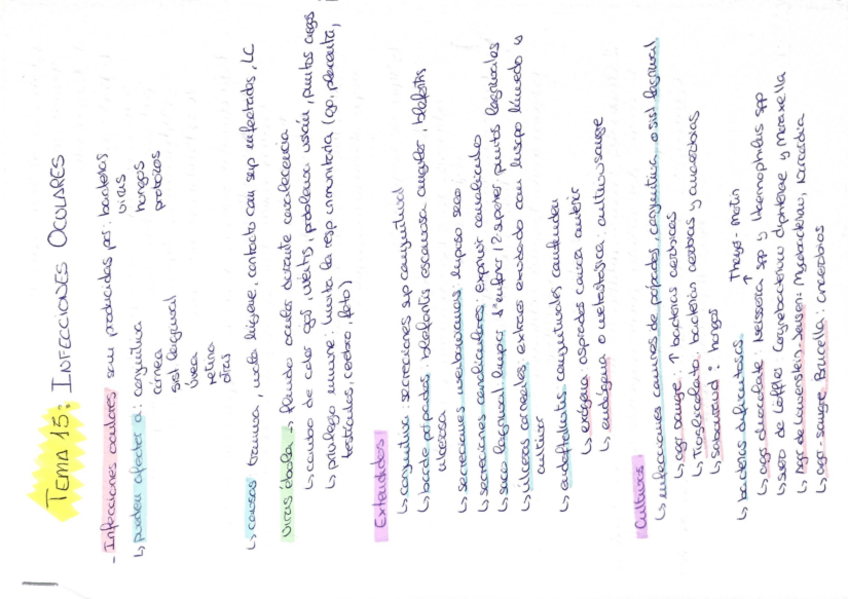 TEMA 15: INFECCIONES OCULARES
- Infecciones oculares son producidas por: bacterias
virus
hongos
protozoos
↳ pueden afectar a: conjuntiva
córnea
sist lagrimal
úvea
retina
otras
↳ causas: trauma, mala higiene, contacto con sup infectadas, LC
Virus ébola → fluido ocular durante convalecencia
↳ cambio de color ojo, uveítis, problema visión, puntos ciegos
↳ privilegio inmune: limita la resp inmunitaria (ojo, placenta,
testículos, cerebro, feto)
Extendidos
↳ conjuntiva: secreciones sup conjuntival
↳ borde párpados: blefaritis escamosa angular, blefaritis
ulcerosa
↳ secreciones meibomianas: hisopo seco
↳ secreciones canaliculares: exprimir canalículo
↳ saco lagrimal: limpiar 1º infior / 2 superior puntos lagrimales
↳ úlceras corneales: extraer exudado con hisopo húmedo y
cultivar
↳ endoftalmitis: conjuntivales
↳ exógena: aspirados cámara anterior
↳ endógena o metastásica: cultivo sangre
Cultivos
↳ infecciones comunes de párpados, conjuntiva, o sist lagrimal
↳ agar sangre: ↑ bacterias aeróbicas
↳ Tioglicolato: bacterias aerobias y anaerobias
↳ Sabouraud: hongos
Thayer-Martin
↑
↳ bacterias dificultosas
↳ agar chocolate: Neisseria spp y Haemophilus spp
↳ suero de Löffler: Corynebacterium diphteriae y Moraxella
↳ Agar de Lowenstein-Jensen: Mycobacterium, Nocardia
↳ agar-sangre Brucella: anaerobios